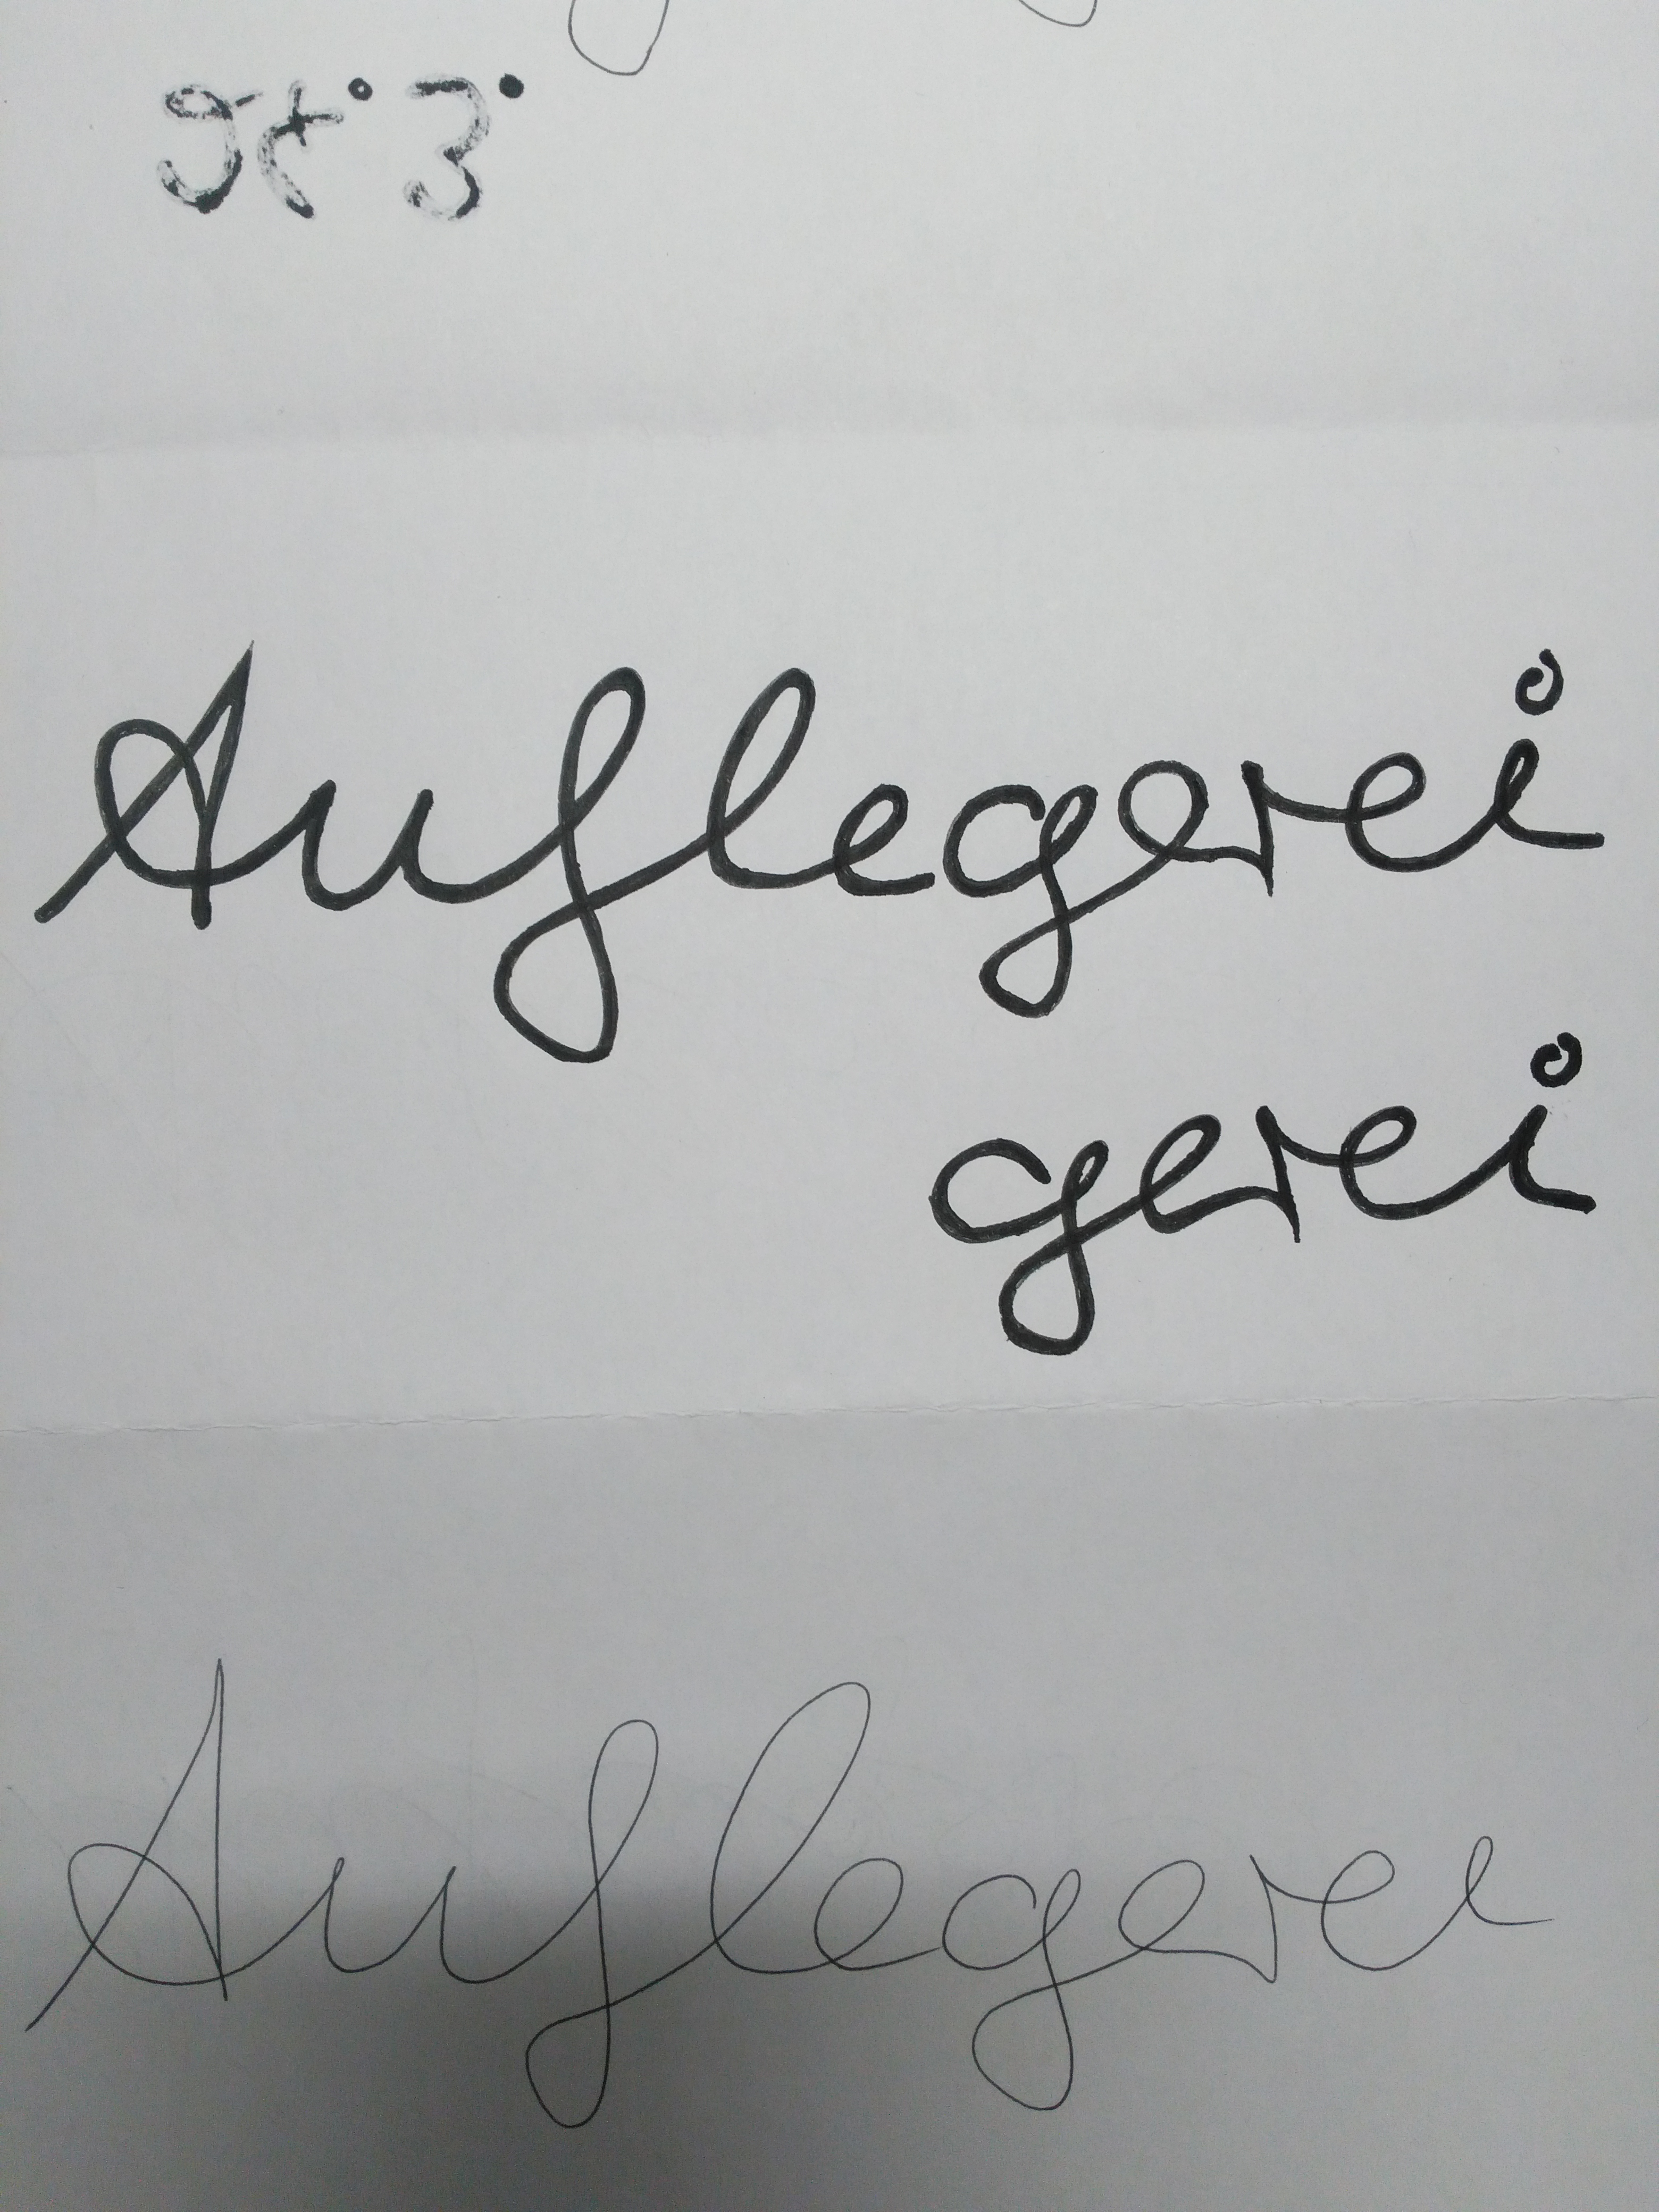 Auflegerei
gerei
Auflegerei